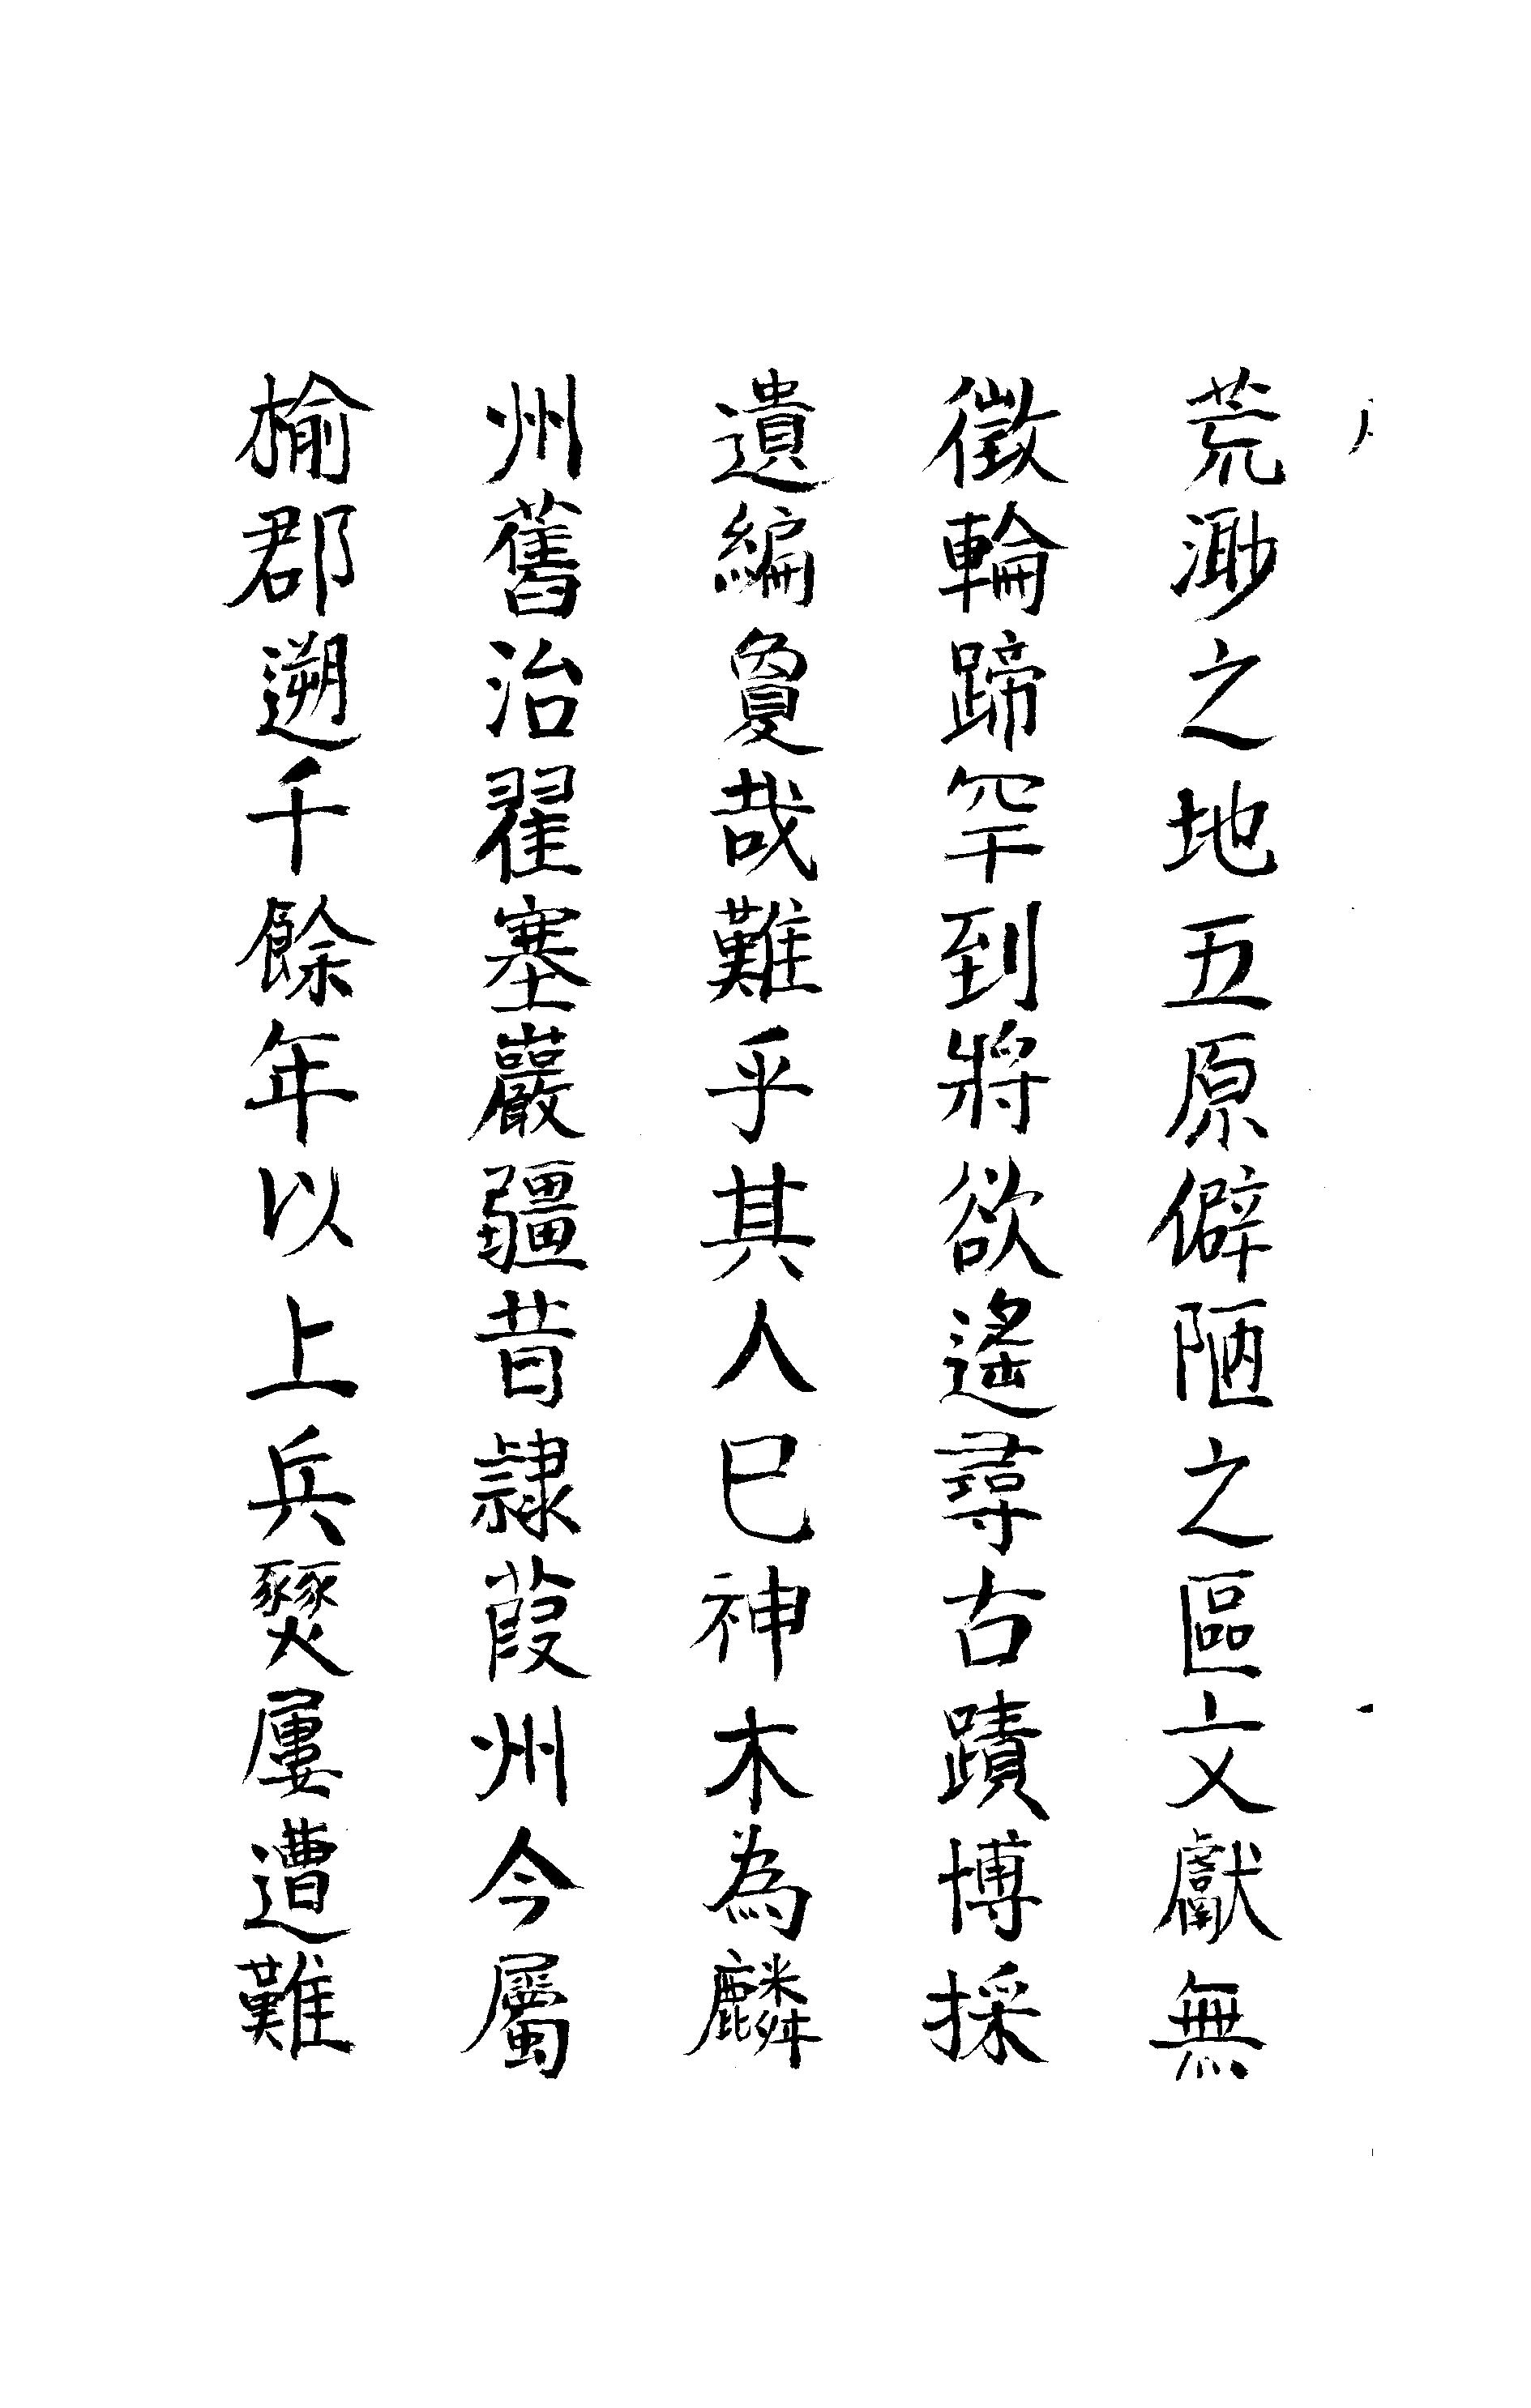 荒渺之地五原僻陋之區文獻無
徵輪蹄罕到將欲遙尋古蹟博採
遺編敻哉難乎其人已神木為麟
州舊治翟塞巖疆昔隸葭州今屬
榆郡遡千餘年以上兵燹屢遭難